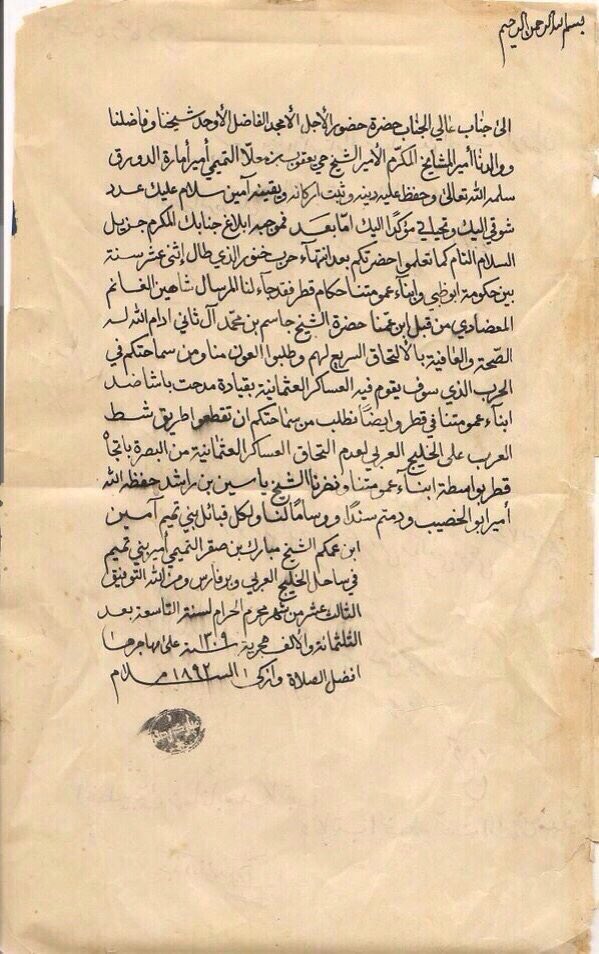 بسم الله الرحمن الرحيم
الى جناب عالي الجناب حضرة حضور الأجل الأمجد الفاضل الأوحد شيخنا وفاضلنا
ووالدنا أمير المشايخ المكرم الأمير الشيخ حي يعقوب بن حلا التميمي أمير أمارة الدورق
سلمه الله تعالى وحفظ عليه دينه وثبت اركانه ويقينه آمين سلام عليك عدد
شوقي اليك وتحياتي مؤكدًا اليك امّا بعد نموجبه ابلاغ جنابك المكرم جزيل
السلام التام كما تعلموا حضرتكم بعد انتهآء حرب خنور الذي طال إثنى عشر سنة
بين حكومة ابوظبي وابنآء عمومتنا حكام قطر فقد جآء لنا المرسال شاهين الغانم
المعضادي من قبل ابن عمّنا حضرة الشيخ جاسم بن محمّد آل ثاني ادام الله له
الصحّة والعافية بالالتحاق السريع لهم وطلبوا العون منا ومن سماحتكم في
الحرب الذي سوف يقوم فيه العساكر العثمانية بقيادة مدحت باشا ضد
ابنآء عمومتنا في قطر وايضًا نطلب من سماحتكم ان تقطعوا طريق شط
العرب على الخليج العربي لعدم التحاق العساكر العثمانية من البصرة باتجاه
قطر بواسطة ابنآء عمومتنا ونفرنا الشيخ ياسين بن راشد حفظه الله
أمير ابو الخصيب ودمتم سندًا ووسامًا لنا ولكل قبائل بني تميم آمين
ابن عمكم الشيخ مبارك بن صقر التميمي أمير بني تميم
في ساحل الخليج العربي وبر فارس ومن الله التوفيق
الثالث عشر من شهر محرم الحرام لسنة التاسعة بعد
الثلثمائة والألف هجرية ١٣٠٩ سنة على مهاجرها
افضل الصلاة وأزكى السلام ١٨٩٢ م